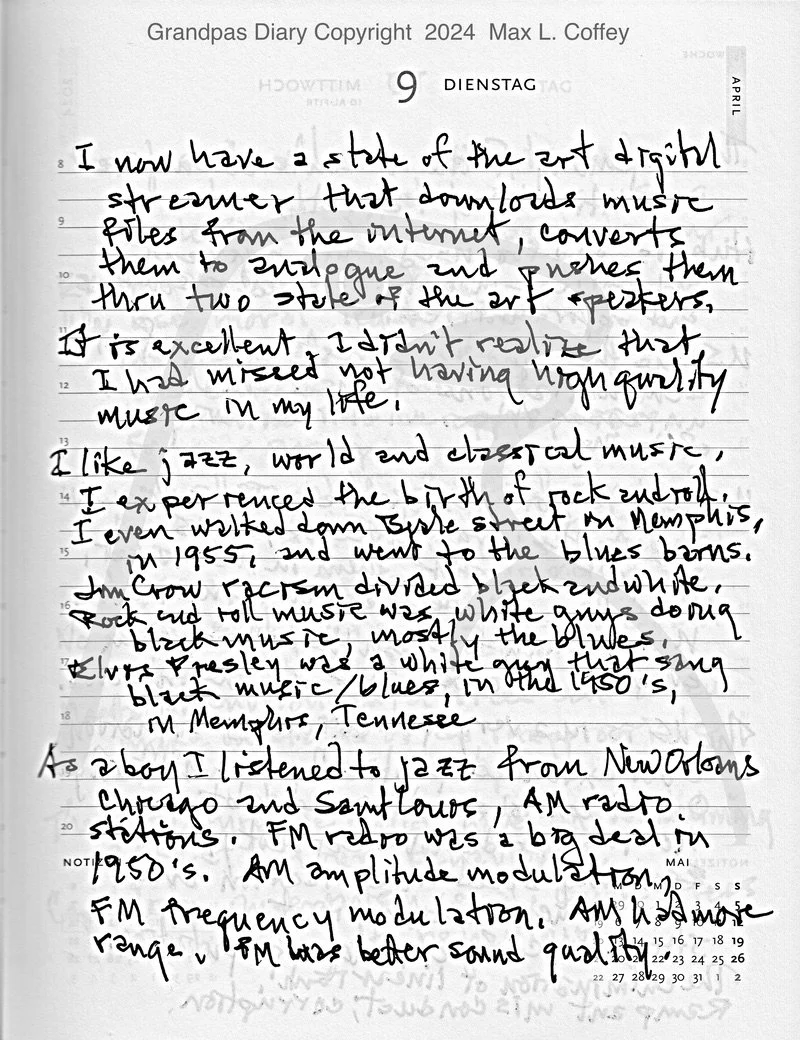 Grandpas Diary Copyright 2024 Max L. Coffey
9 DIENSTAG
APRIL
8 I now have a state of the art digital
streamer that downloads music
9 files from the internet, converts
10 them to analogue and pushes them
thru two state of the art speakers.
11 It is excellent, I didn't realize that
12 I had missed not having high quality
music in my life.
13 I like jazz, world and classical music.
14 I experienced the birth of rock and roll.
I even walked down Byale street in Memphis,
15 in 1955, and went to the blues barns.
Jim Crow racism divided black and white.
16 Rock and roll music was white guys doing
black music, mostly the blues.
17 Elvis Presley was a white guy that sang
black music/blues, in the 1950's,
18 in Memphis, Tennessee
As a boy I listened to jazz from New Orleans
Chicago and Saint Louis, AM radio
20 stations. FM radio was a big deal in
NOTIZEN 1950's. AM amplitude modulation,
MAI
M D M D F S S
FM frequency modulation. AM had more
range. FM was better sound quality.
13 14 15 16 17 18 19
20 21 22 23 24 25 26
22 27 28 29 30 31 1 2